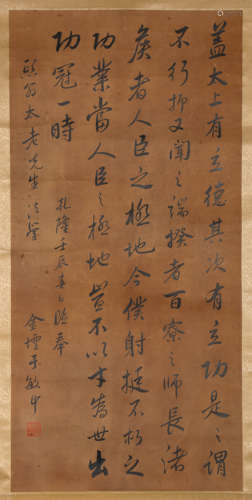 蓋太上有立德其次有立功是之謂
不朽抑又聞之端揆者百寮之師長諸
侯者人臣之極地今僕射挺不朽之
功業當人臣之極地豈不以才為世出
功冠一時
乾隆壬辰春日臨奉
翁太老先生法鑒
金壇于敏中